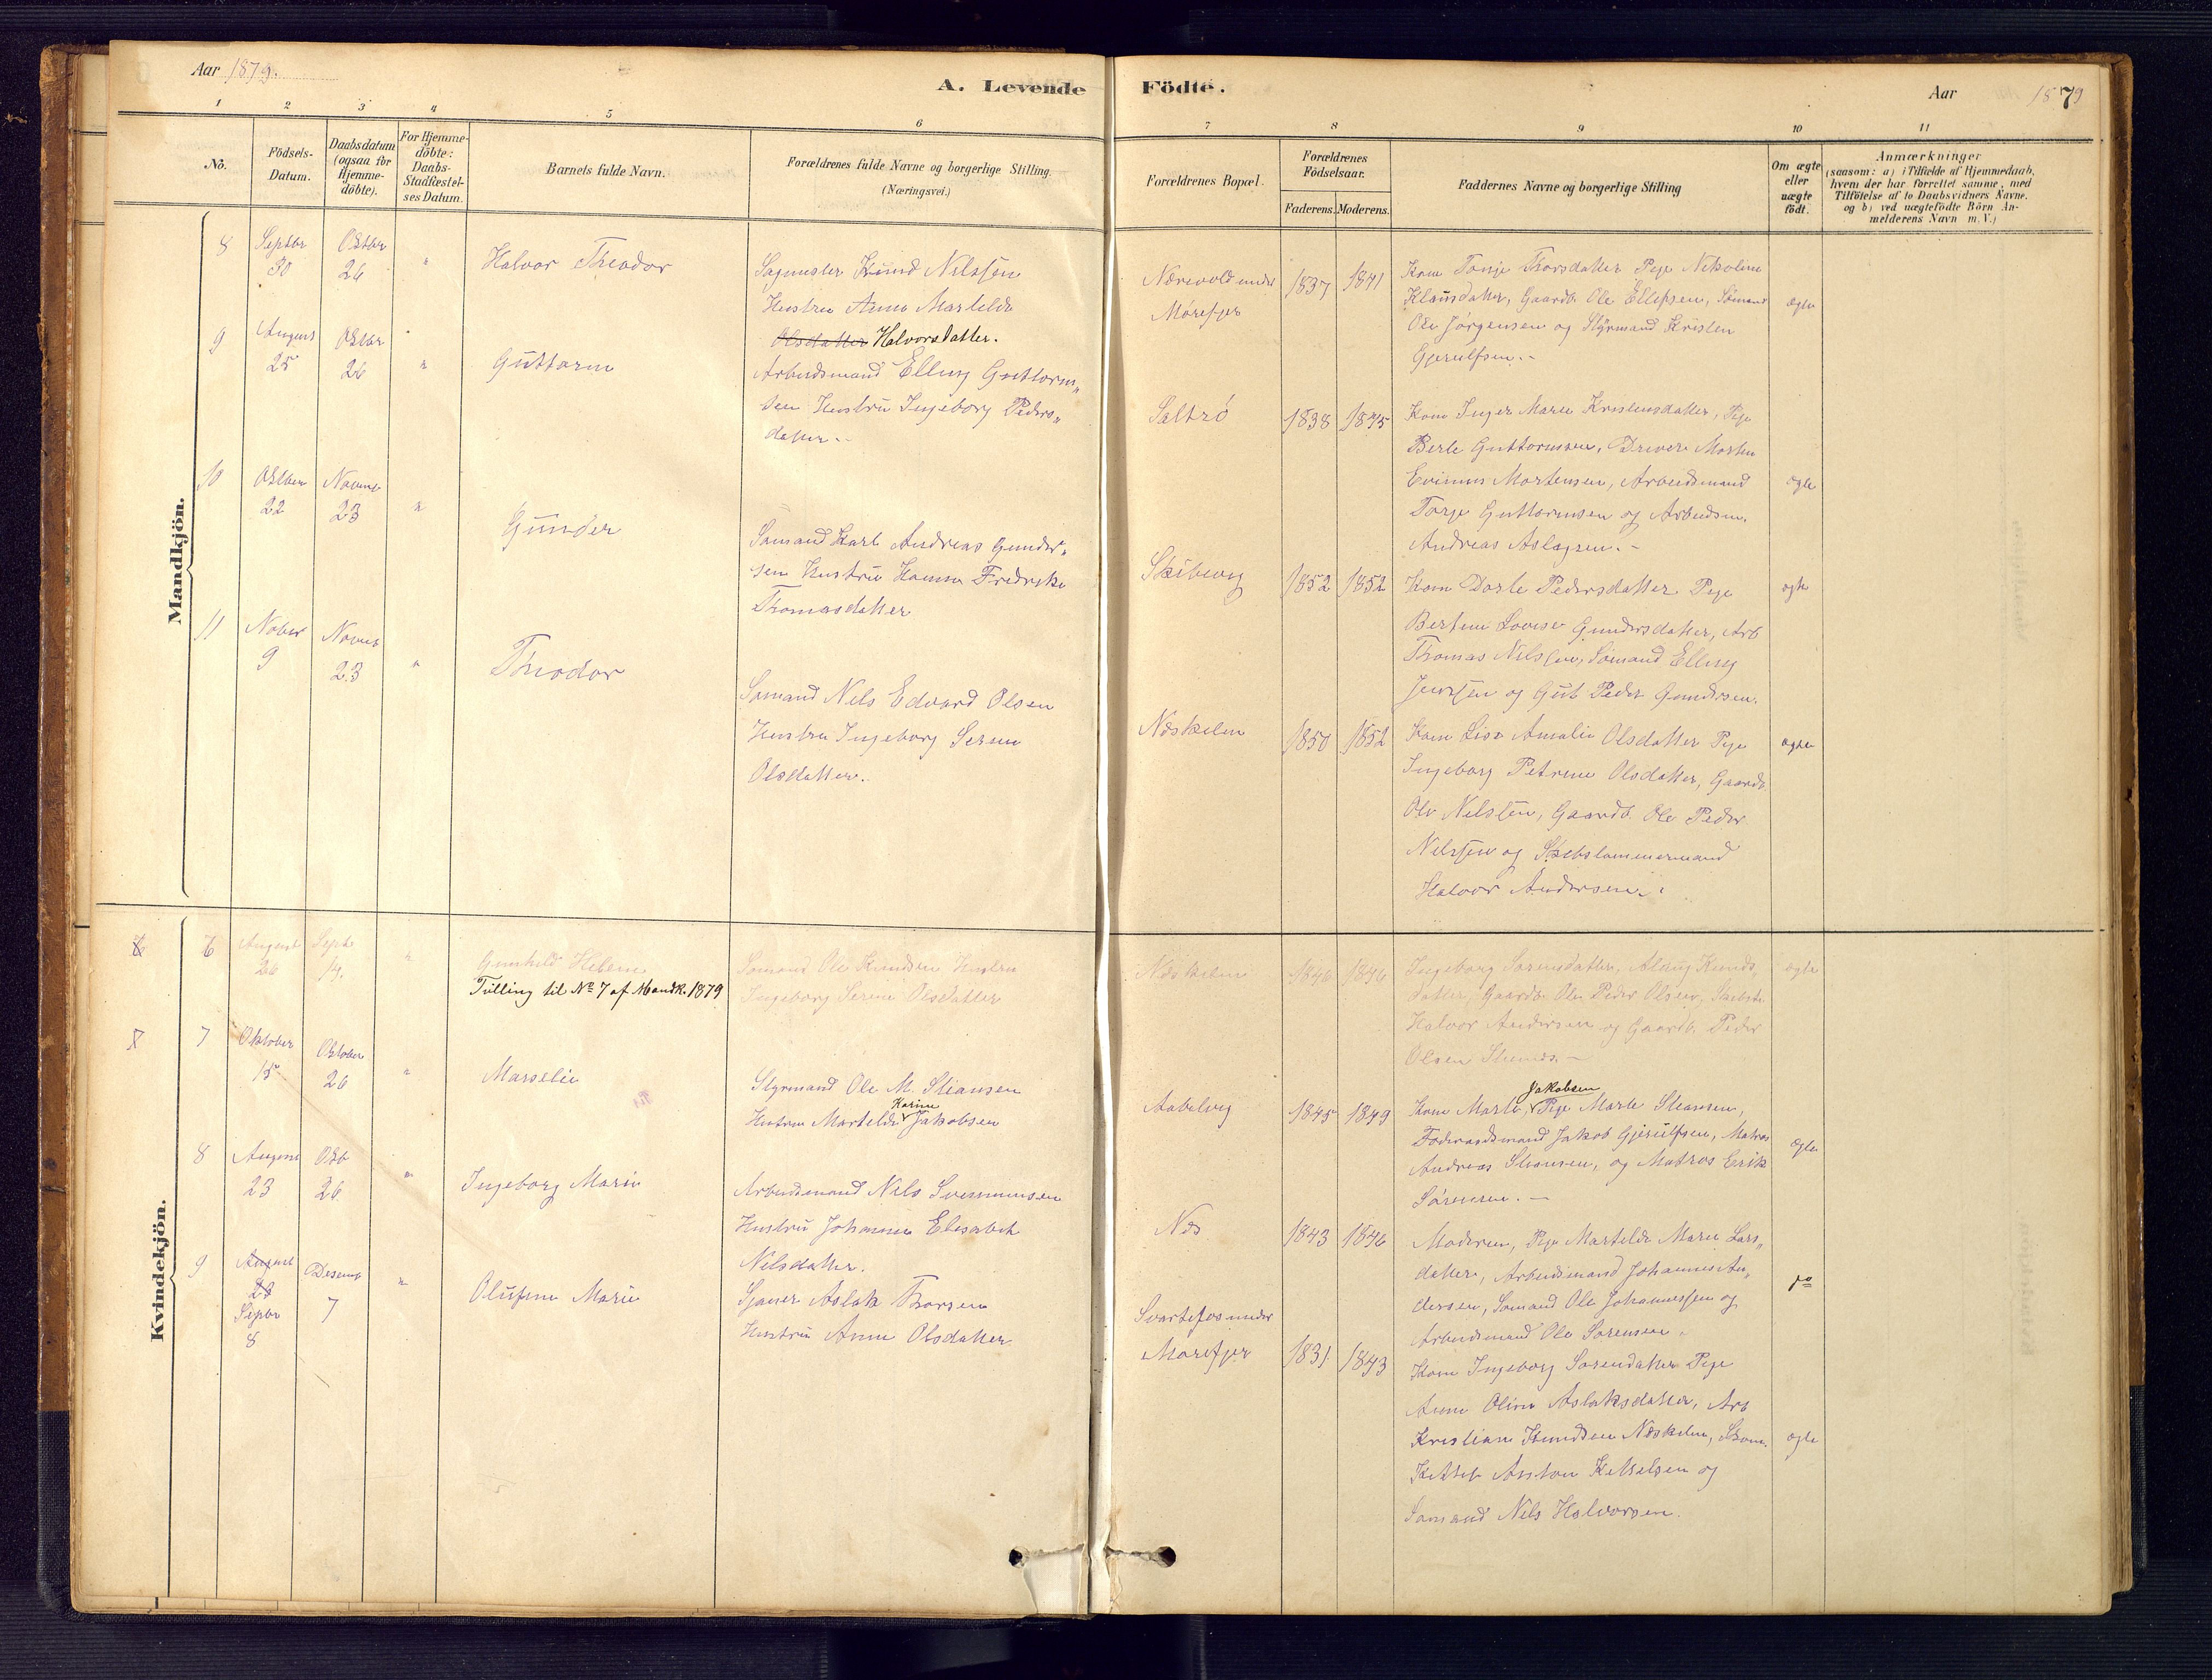 Aar 1879.
A. Levende Födte.
Aar 1879
1 2 3 4 5 6 7 8 9 10 11
No.
Födsels-Datum.
Daabsdatum (ogsaa for Hjemme-döbte).
For Hjemme-döbte: Daabs-Stadfæstel-ses Datum.
Barnets fulde Navn.
Forældrenes fulde Navne og borgerlige Stilling. (Næringsvei.)
Forældrenes Bopæl.
Forældrenes Födselsaar.
Faderens. Moderens.
Faddernes Navne og borgerlige Stilling
Om ægte eller uægte födt.
Anmærkninger
(saasom: a) i Tilfælde af Hjemmedaab, hvem der har forrettet samme, med Tilföielse af to Daabsvidners Navne. og b) ved uægtefödte Börn An-melderens Navn m. V.)
Mandkjön.
8 Septbr 30 Oktbr 26 "
Halvor Theodor
Sagmester Knud Nilssen
Hustru Anne Martelde
Olsdatter Halvorsdatter.
Nærevold under
Mörefjer
1837 1841
Kone Tonje Thorsdatter Pige Nikoline
Klausdatter, Gaardb. Ole Ellefsen, Sömand
Ole Jörgensen og Styrmand Kristen
Gjerulfsen.-
ægte
9 August 25 Oktbr 26 "
Guttorm
Arbeidsmand Elling Guttorm„
sen Hustru Ingeborg Peders„
datter.-
Saltrö
1838 1845
Kone Inger Marie Kristensdatter, Pige
Berte Guttormsen, Driver Morten
Evinus Mortensen, Arbeidsmand
Torje Guttormsen og Arbeidsm.
Andreas Aslagsen.-
ægte
10 Oktber 22 Novmb 23 "
Gunder
Sömand Karl Andreas Gunder„
sen Hustru Hanna Fredrikke
Thomasdatter
Skibevig
1852 1852
Kone Dorte Pedersdatter Pige
Bertine Lovise Gundersdatter, Arb
Thomas Nilssen, Sömand Elling
Jenssen og Gut Peder Gundersen.
ægte
11 Nober 9 Novmb 23 "
Theodor
Sömand Nels Edvard Olsen
Hustru Ingeborg Serine
Olsdatter.
Neskelen
1850 1852
Kone Lise Amalie Olsdatter Pige
Ingeborg Petrine Olsdatter, Gaardb.
Ole Nilssen, Gaardb. Ole Peder
Nilssen og Skibstømmermand
Halvor Andersen.
ægte
Kvindekjön.
6 6 August 26 Sept 14. "
Gunhild Helene
Tvilling til No 7 af Mandk. 1879
Sömand Ole Knudsen Hustru
Ingeborg Serine Olsdatter
Neskelen
1846 1846
Ingeborg Sorensdatter, Alaug Knuds„
datter, Gaardb. Ole Peder Olsen, Skibst.
Halvor Andersen og Gaardb. Peder
Olsen
ægte
7 7 Oktober 15 Oktober 26 "
Marselie
Styrmand Ole M. Stiansen
Hustru Martelde Karine Jakobsen
Aabelvig
1845 1849
Kone Marte Jakobsen Pige Marte Stiansen,
Foderaadsmand Jakob Gjerulfsen, Matros
Andreas Stiansen, og Matros Erik
Sörensen. -
ægte
8 August 23 Oktb 26 "
Ingeborg Marie
Arbeidsmand Nils Svennunsen
Hustru Johanne Elesabet
Nelsdatter.
Nes
1843 1846
Moderen, Pige Martelde Maren Lars„
datter, Arbeidsmand Johannes An„
dersen, Sömand Ole Johannessen og
Arbeidsmand Ole Sorensen.
do
9 August 28 Sepbr 8 Desemb 7 "
Olufine Marie
Sjauer Aslak Thorsen
Hustru Anne Olsdatter
Svartefos under
Morefjer
1831 1843
Kone Ingeborg Sorendatter Pige
Anne Oline Aslaksdatter, Arb
Kristian Knudsen Neskelen, Skom.
Kittel Anton Kittelsen og
Sömand Nils Halvorsen.
ægte